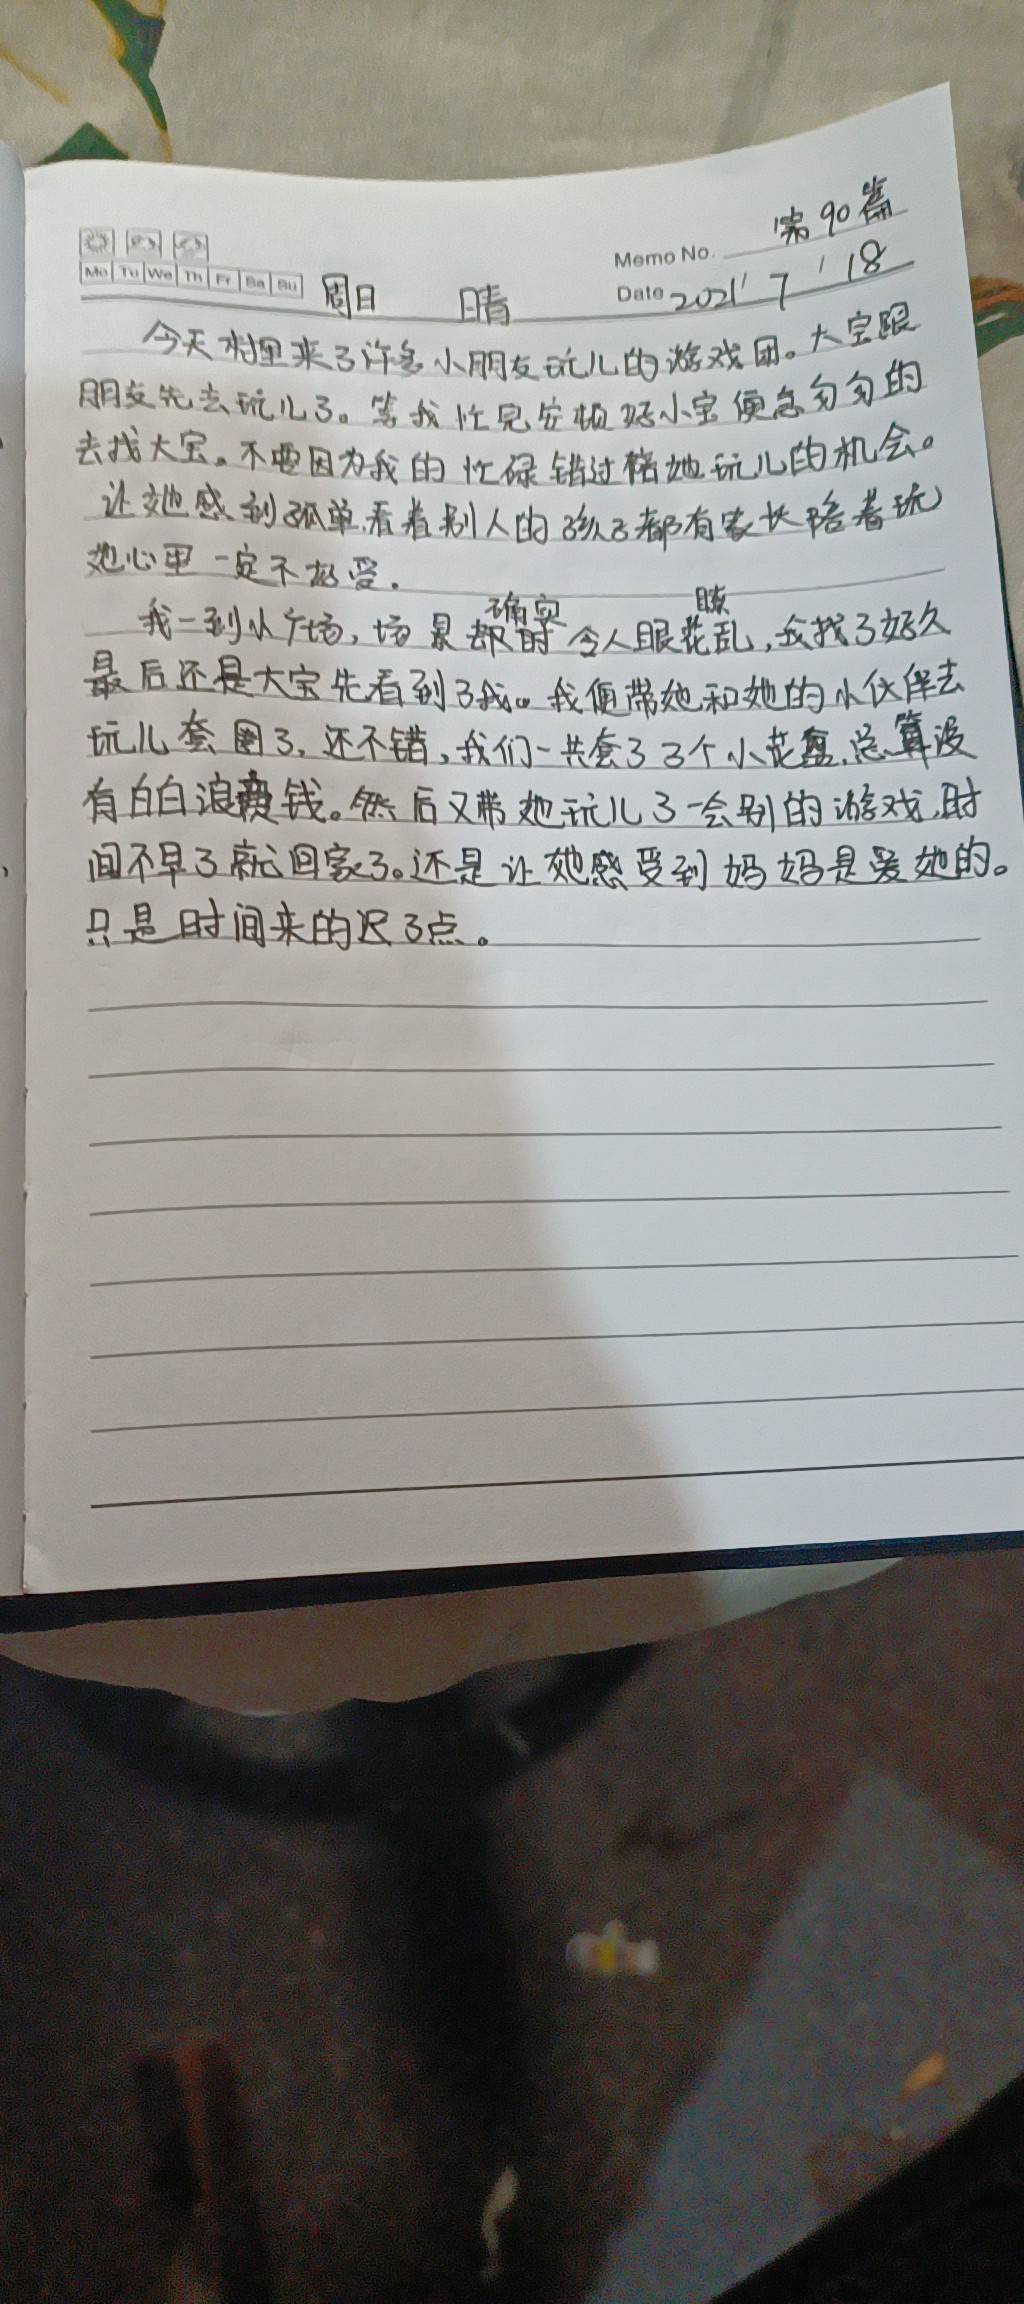 第90篇
Memo No.
Mo Tu We Th Fr Sa Su
周日 晴 Date 2021 7 18
今天村里来了许多小朋友玩儿的游戏团。大宝跟
朋友先去玩儿了。等我忙完安顿好小宝便急匆匆的
去找大宝。不要因为我的忙碌错过陪她玩儿的机会。
让她感到孤单看着别人的孩子都有家长陪着玩
她心里一定不好受.
确实 瞭
我一到小广场,场景却时令人眼花乱,我找了好久
最后还是大宝先看到了我。我便带她和她的小伙伴去
玩儿套圈了,还不错,我们一共套了3个小花盆,总算没
有白白浪费钱。然后又带她玩儿了一会别的游戏,时
间不早了就回家了。还是让她感受到妈妈是爱她的。
只是时间来的迟了点。